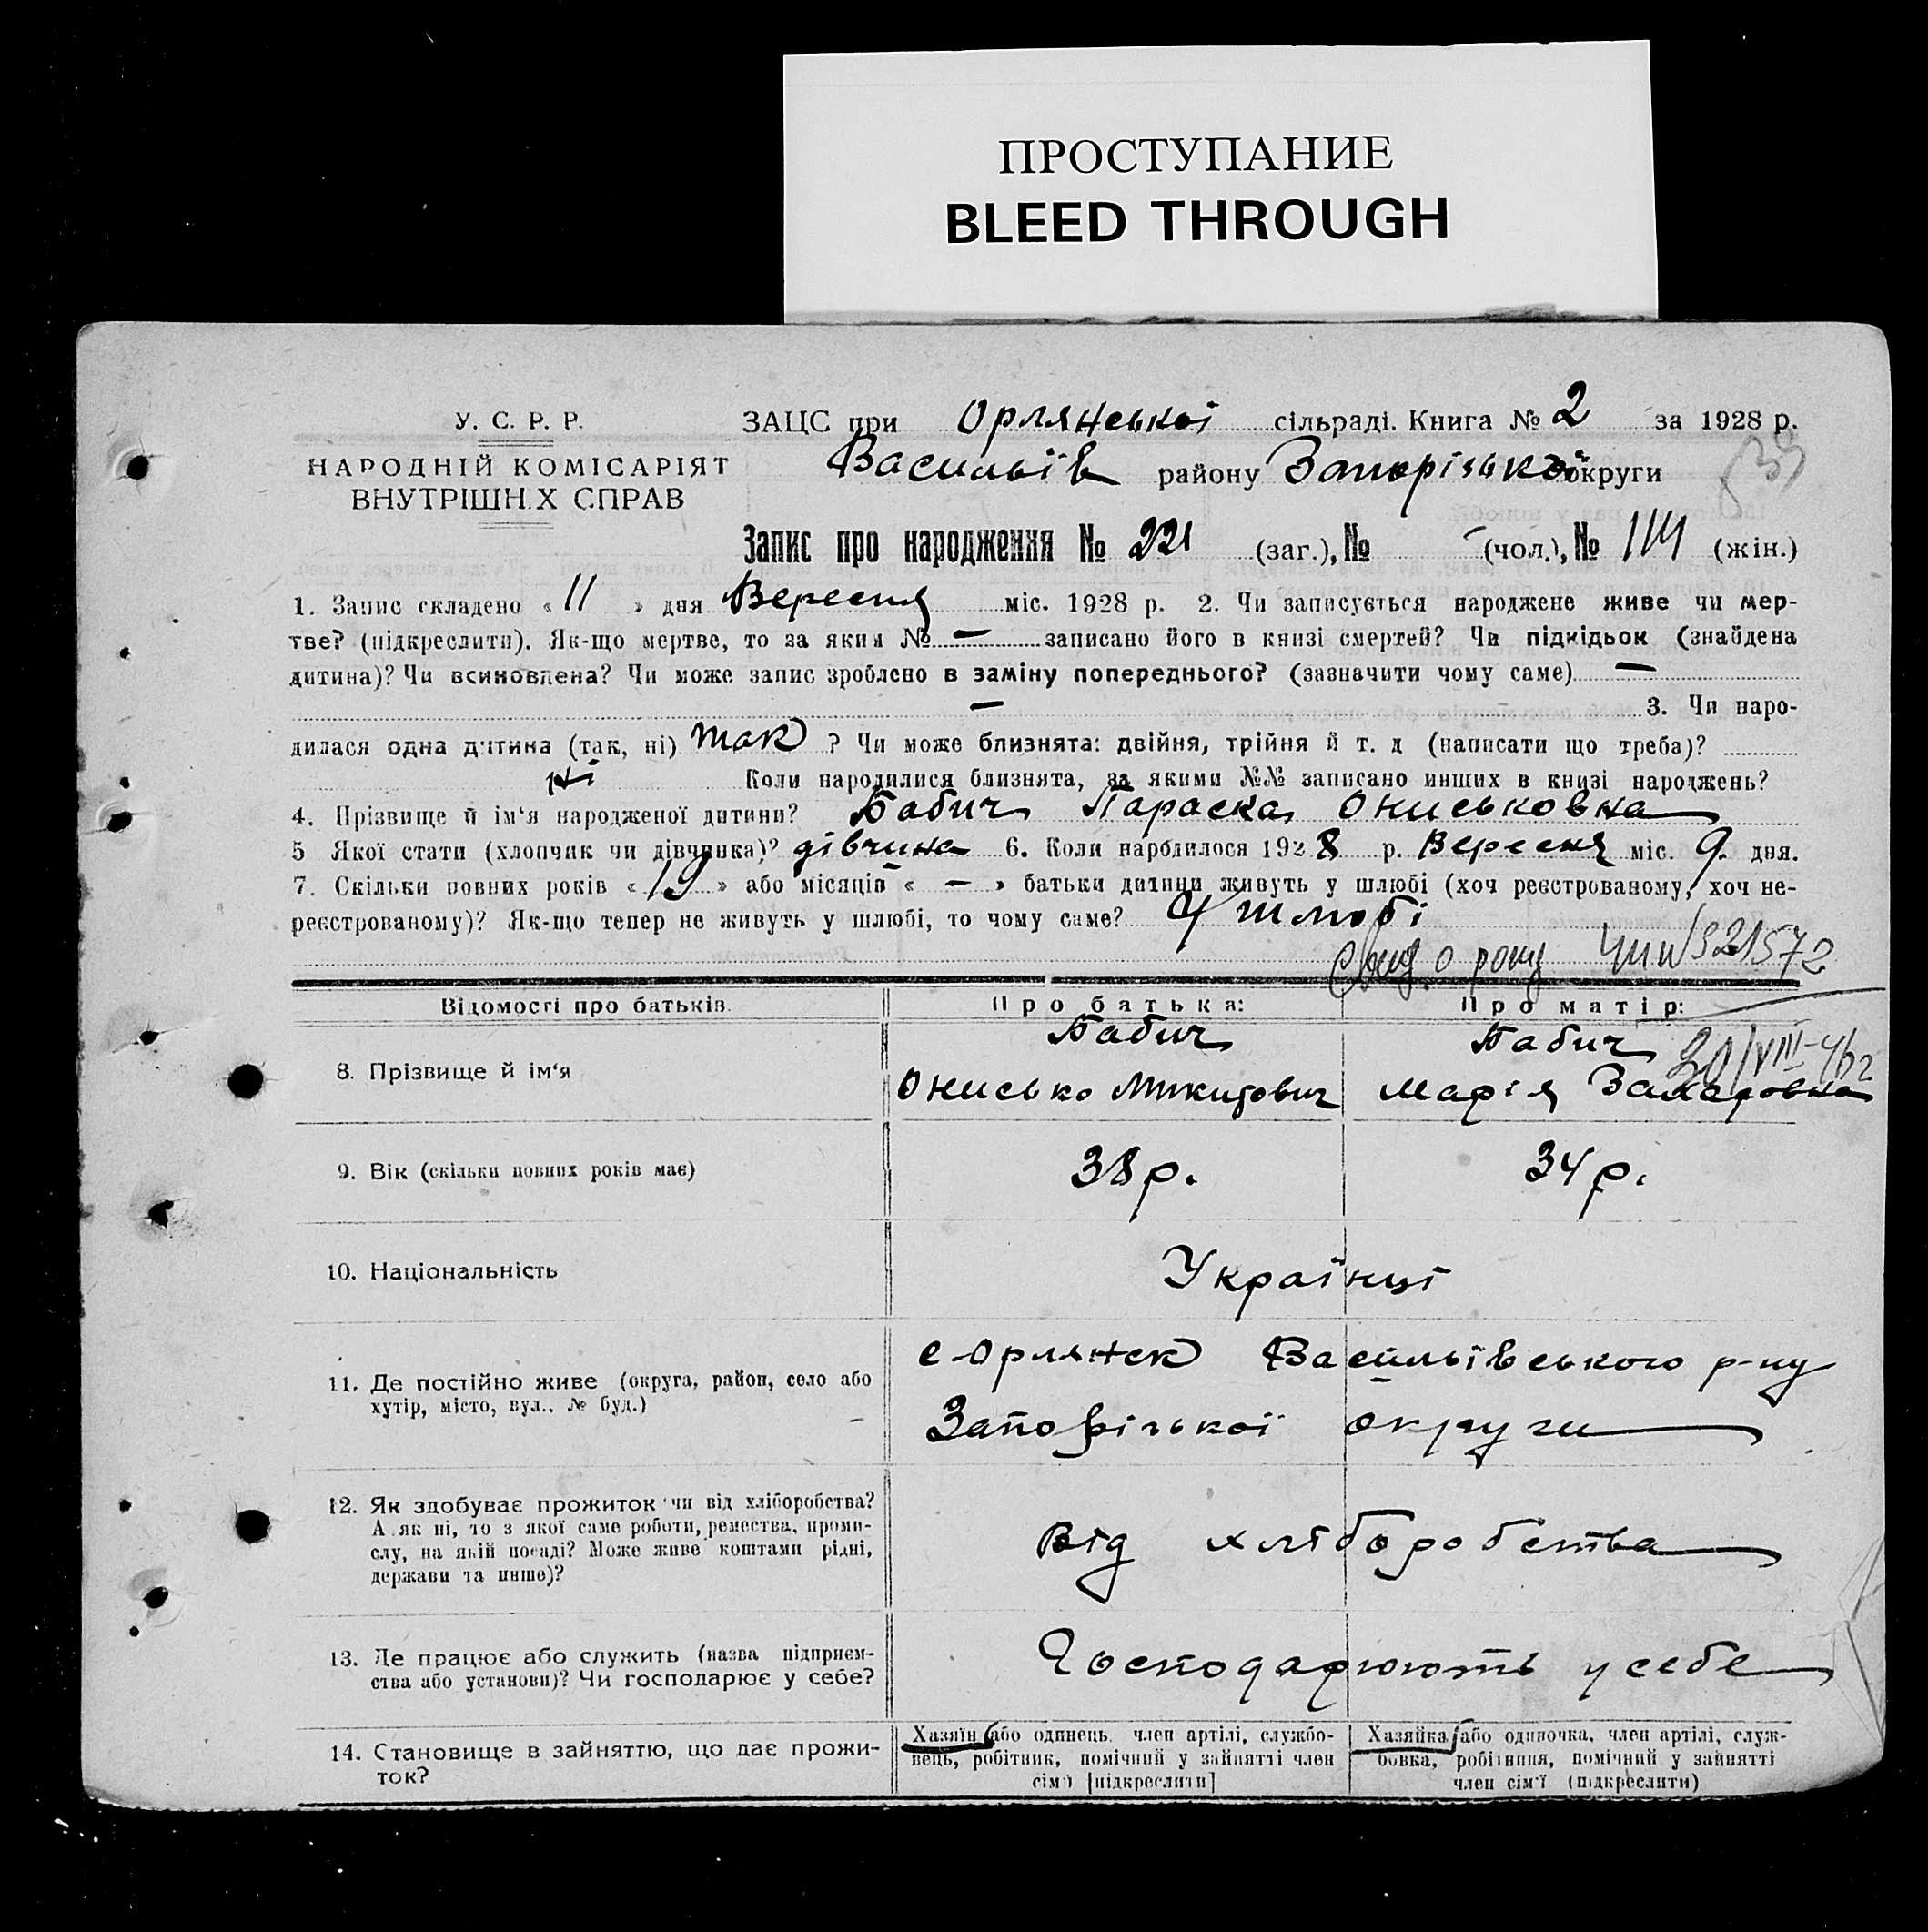 ПРОСТУПАНИЕ
BLEED THROUGH
У. С. Р. Р.
НАРОДНІЙ КОМІСАРІЯТ
ВНУТРІШНІХ СПРАВ
ЗАЦС при Орлянської сільраді. Книга № 2 за 1928 р.
Васильїв району Запорізької округи
Запис про народження № 221 (заг.), № - (чол.), № 114 (жін.)
1. Запис складено « 11 » дня Вересня міс. 1928 р. 2. Чи записується народжене живе чи мер-
тве? (підкреслити). Як-що мертве, то за яким № — записано його в книзі смертей? Чи підкідьок (знайдена
дитина)? Чи всиновлена? Чи може запис зроблено в заміну попереднього? (зазначити чому саме) —
— 3. Чи наро-
дилася одна дитина (так, ні) так ? Чи може близнята: двійня, трійня й т. д (написати що треба)?
ні Коли народилися близнята, за якими №№ записано инших в книзі народжень?
4. Прізвище й ім'я народженої дитини? Бабич Параска Ониськовна
5 Якої стати (хлопчик чи дівчинка)? дівчина 6. Коли народилося 1928 р. Вересня міс. 9. дня.
7. Скільки повних років « 19 » або місяців « — » батьки дитини живуть у шлюбі (хоч реєстрованому, хоч не-
реєстрованому)? Як-що тепер не живуть у шлюбі, то чому саме? У шлюбі
о 321572
Відомості про батьків. Про батька: Про матір:
8. Прізвище й ім'я
Бабич
Онисько Микитович
Бабич
Марія Захаровна
9. Вік (скільки повних років має) 38 р. 34 р.
10. Національність Українці
11. Де постійно живе (округа, район, село або
хутір, місто, вул., № буд.)
с Орлянск Васильївського р-ну
Запорізької округи
12. Як здобуває прожиток чи від хліборобства?
А як ні, то з якої саме роботи, ремества, проми-
слу, на якій посаді? Може живе коштами рідні,
держави та инше)?
Від хліборобства
13. Де працює або служить (назва підприєм-
ства або установи)? Чи господарює у себе?
Господарюють у себе
14. Становище в зайняттю, що дає прожи-
ток?
Хазяїн або одинець, член артілі, службо-
вець, робітник, помічний у зайнятті член
сім'ї [підкреслити]
Хазяйка або одиночка, член артілі, служ-
бовка, робітниця, помічний у зайнятті
член сім'ї (підкреслити)